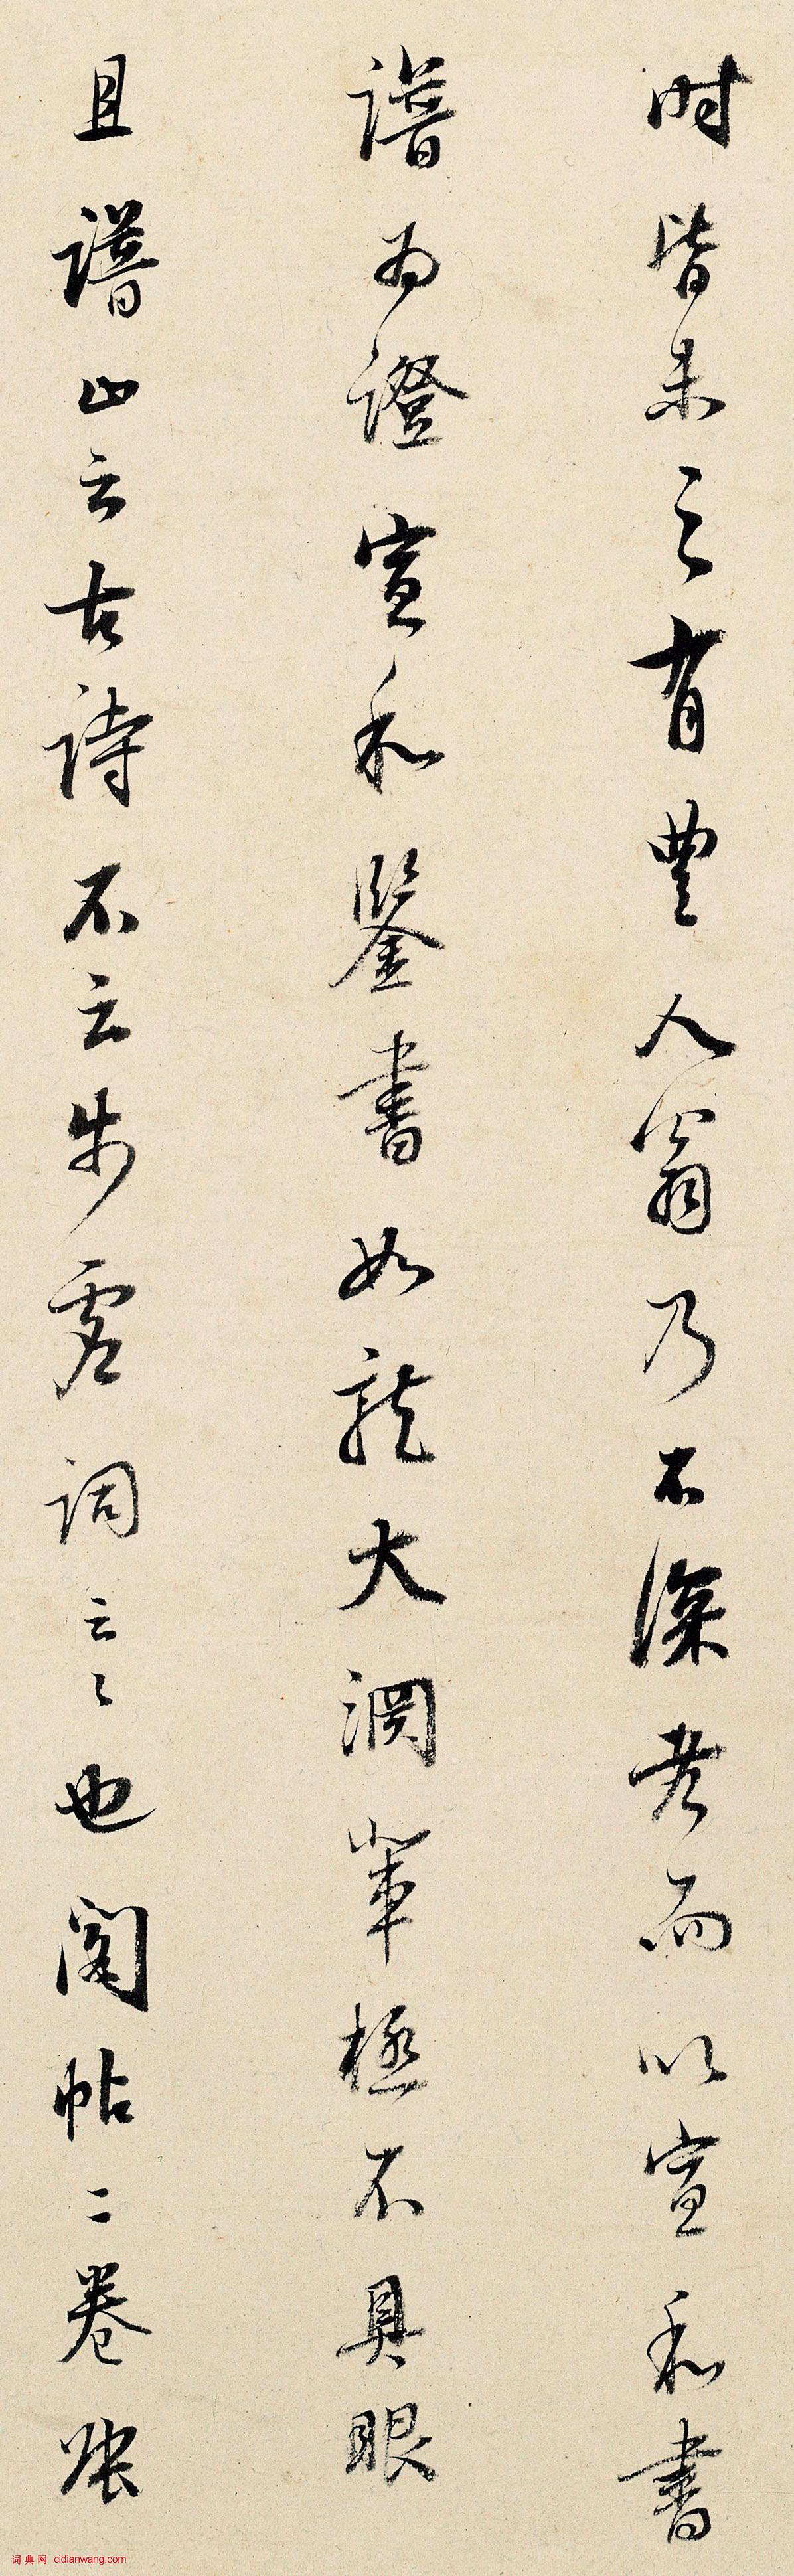 时皆未之有豐人翁乃不深考而以宣和書
譜為證宣和鑒書如龍大淵輩極不具眼
且譜止云古詩不云步虛詞云々也閣帖二卷張
词典网 cidianwang.com